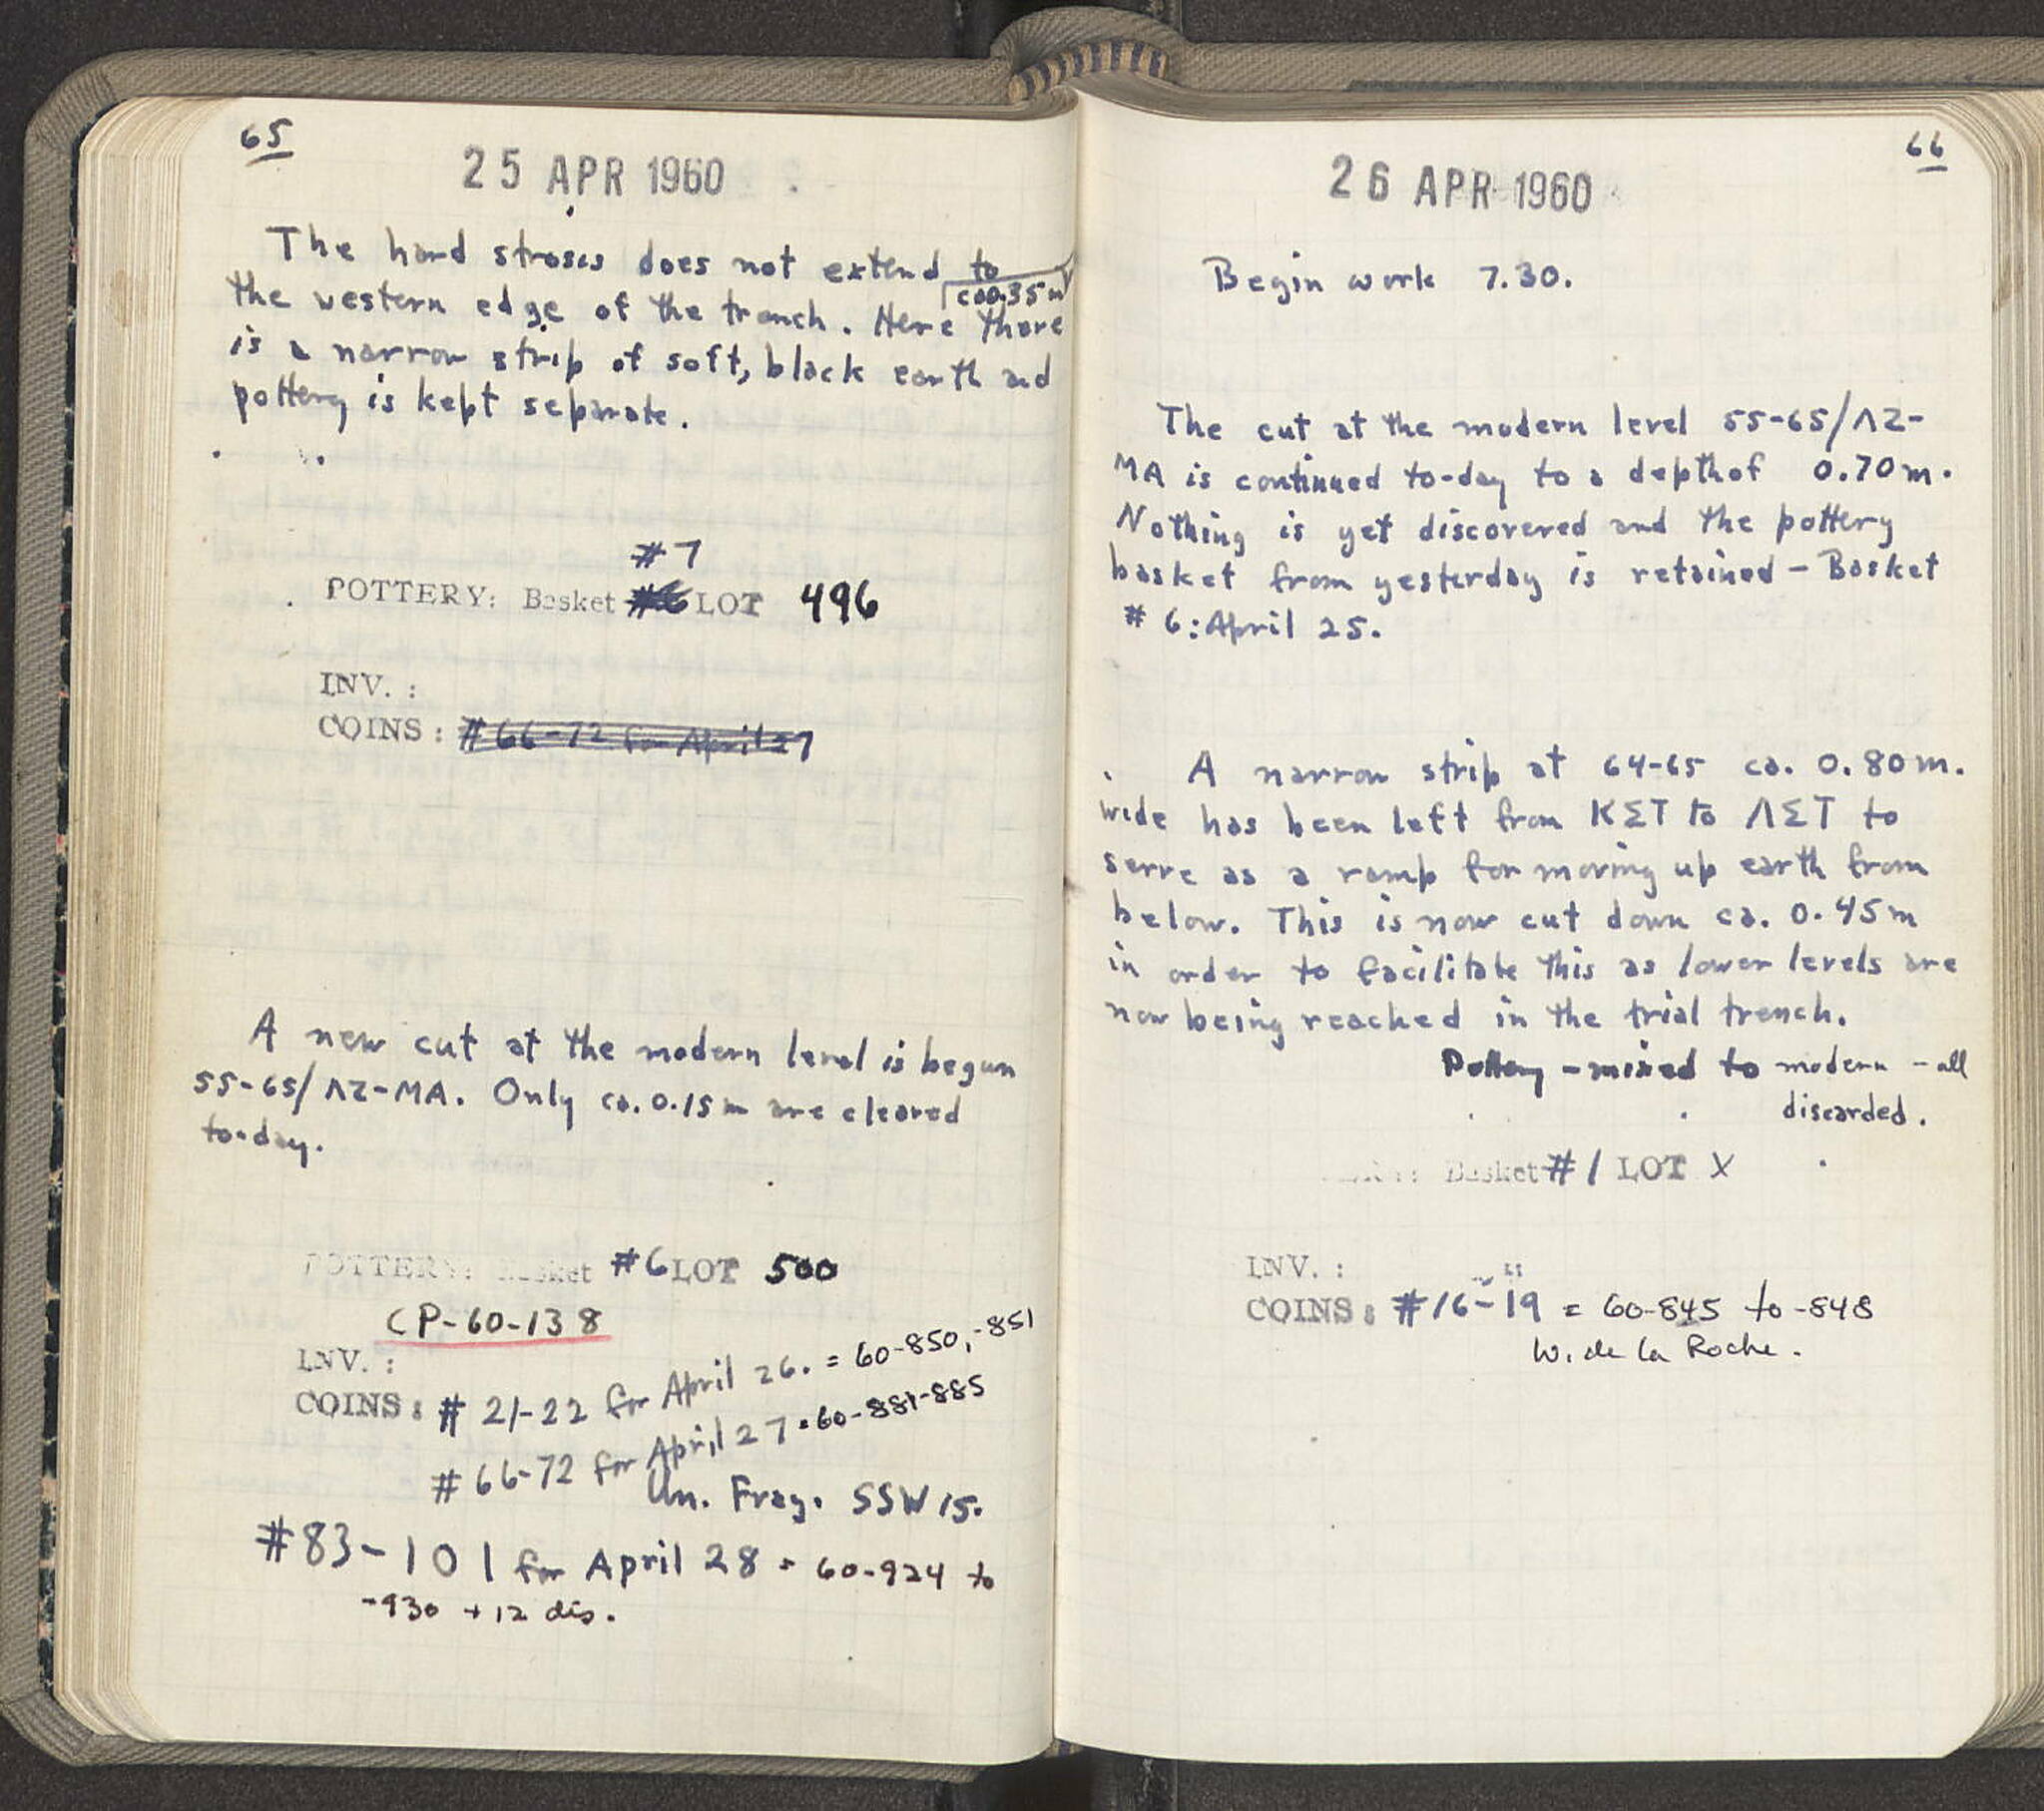 65
25 APR 1960
The hard stroses does not extend to
ca 0.35m
the western edge of the trench. Here there
is a narrow strip of soft, black earth and
pottery is kept separate.
#7
POTTERY: Basket #6 LOT 496
INV. :
COINS: #66-72 for April 27
A new cut at the modern level is begun
55-65/ΛΖ-ΜΑ. Only ca. 0.15m are cleared
to-day.
POTTERY: Basket #6 LOT 500
CP-60-138
INV. :
COINS: # 21-22 for April 26. = 60-850, -851
# 66-72 for April 27 = 60-881-885
Un. Frag. SSW 15.
#83-101 for April 28 = 60-924 to
-930 + 12 dis.
66
26 APR 1960
Begin work 7.30.
The cut at the modern level 55-65/ΛΖ-
ΜΑ is continued to-day to a depth of 0.70m.
Nothing is yet discovered and the pottery
basket from yesterday is retained - Basket
# 6: April 25.
A narrow strip at 64-65 ca. 0.80m.
wide has been left from ΚΣΤ to ΛΣΤ to
serve as a ramp for moving up earth from
below. This is now cut down ca. 0.45m
in order to facilitate this as lower levels are
now being reached in the trial trench.
Pottery - mixed to modern - all
discarded.
Basket #1 LOT X
INV. :
COINS: #16-19 = 60-845 to -848
W. de la Roche.